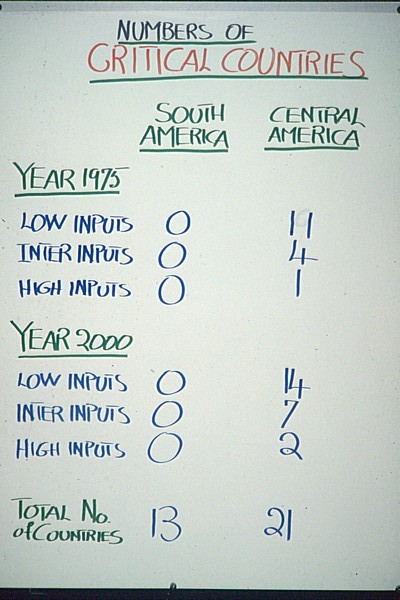 NUMBERS OF
CRITICAL COUNTRIES
SOUTH AMERICA CENTRAL AMERICA
YEAR 1975
LOW INPUTS 0 11
INTER INPUTS 0 4
HIGH INPUTS 0 1
YEAR 2000
LOW INPUTS 0 14
INTER INPUTS 0 7
HIGH INPUTS 0 2
TOTAL No. of COUNTRIES 13 21